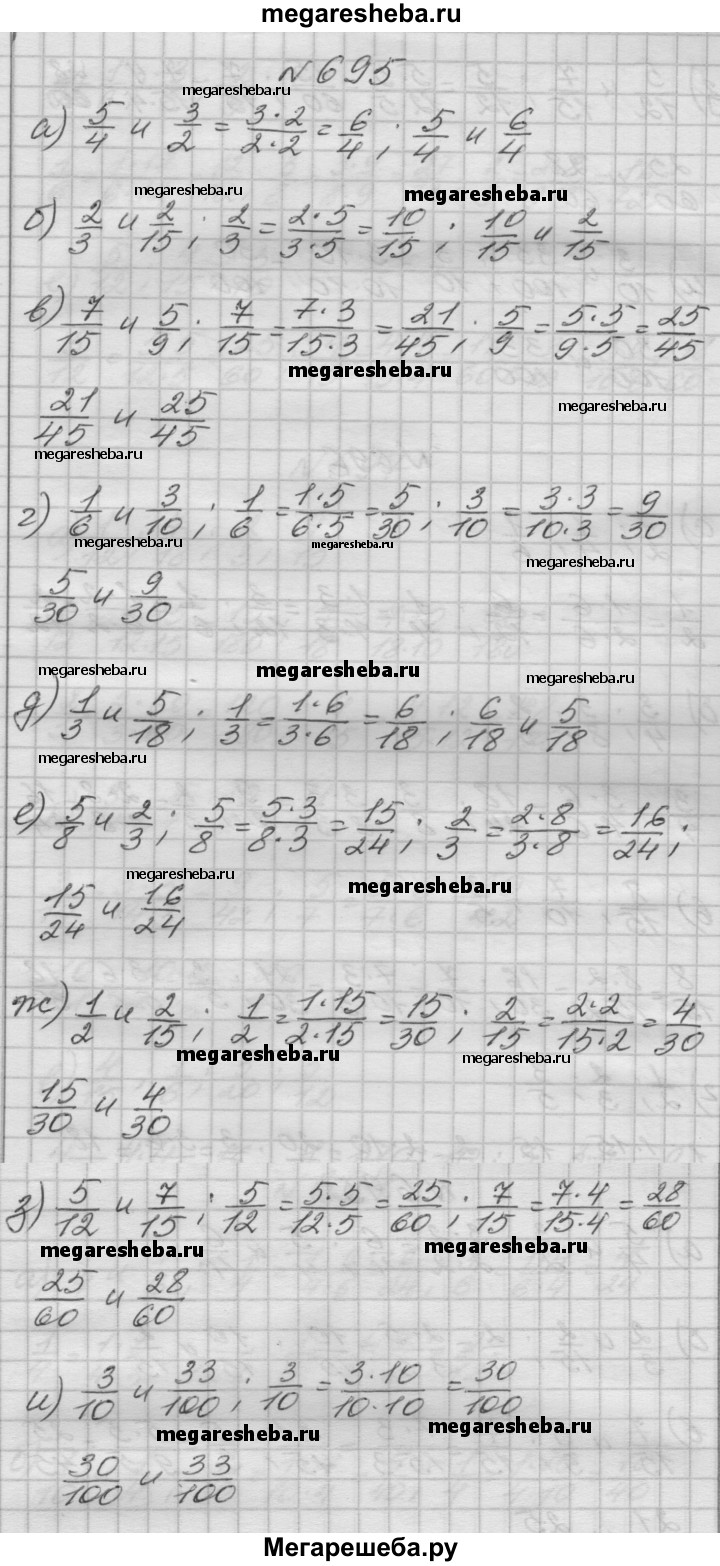 megaresheba.ru
№695
megaresheba.ru
а) 5/4 и 3/2 = 3·2/2·2 = 6/4; 5/4 и 6/4
megaresheba.ru megaresheba.ru
б) 2/3 и 2/15; 2/3 = 2·5/3·5 = 10/15; 10/15 и 2/15
в) 7/15 и 5/9; 7/15 = 7·3/15·3 = 21/45; 5/9 = 5·5/9·5 = 25/45
megaresheba.ru
21/45 и 25/45
megaresheba.ru
megaresheba.ru
г) 1/6 и 3/10; 1/6 = 1·5/6·5 = 5/30; 3/10 = 3·3/10·3 = 9/30
megaresheba.ru megaresheba.ru megaresheba.ru
5/30 и 9/30
megaresheba.ru megaresheba.ru megaresheba.ru
д) 1/3 и 5/18; 1/3 = 1·6/3·6 = 6/18; 6/18 и 5/18
megaresheba.ru
е) 5/8 и 2/3; 5/8 = 5·3/8·3 = 15/24; 2/3 = 2·8/3·8 = 16/24;
megaresheba.ru megaresheba.ru
15/24 и 16/24
ж) 1/2 и 2/15; 1/2 = 1·15/2·15 = 15/30; 2/15 = 2·2/15·2 = 4/30
megaresheba.ru megaresheba.ru
15/30 и 4/30
з) 5/12 и 7/15; 5/12 = 5·5/12·5 = 25/60; 7/15 = 7·4/15·4 = 28/60
megaresheba.ru megaresheba.ru
25/60 и 28/60
и) 3/10 и 33/100; 3/10 = 3·10/10·10 = 30/100
megaresheba.ru megaresheba.ru
30/100 и 33/100
Мегарешеба.ру